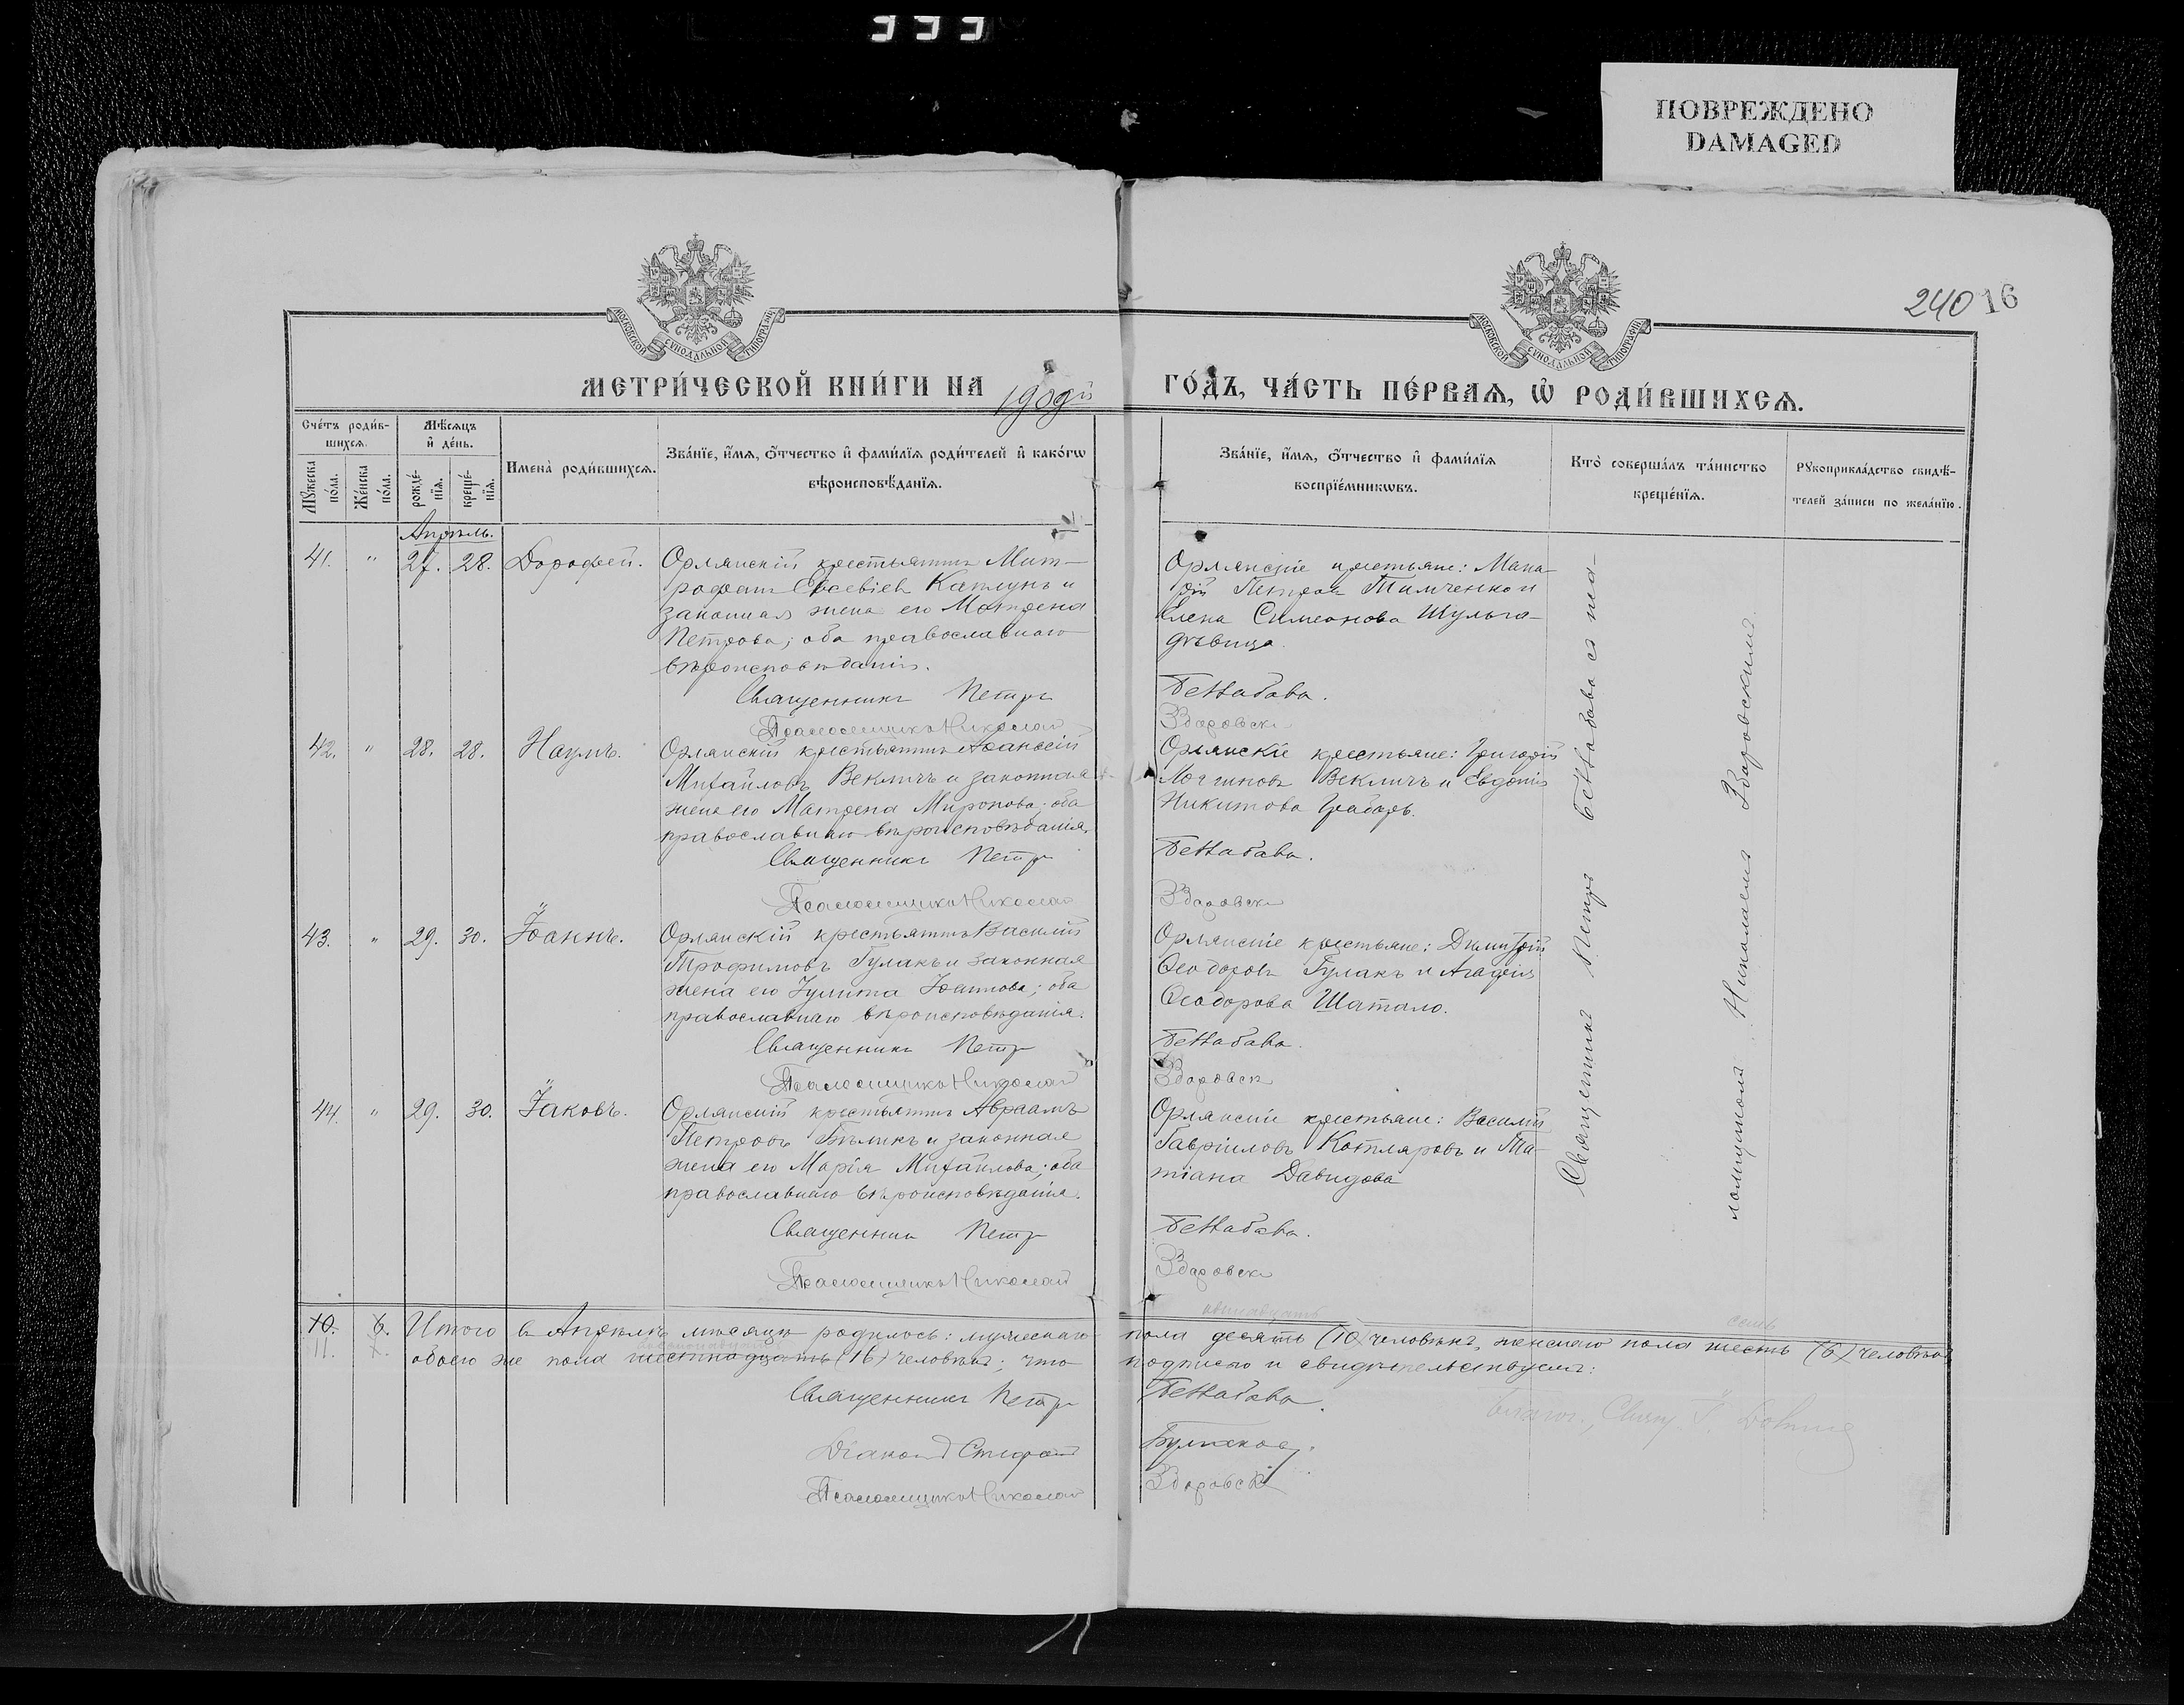 399
ПОВРЕЖДЕНО
DAMAGED
240 16
МОСКОВСКОЙ СѴНОДАЛЬНОЙ ТИПОГРАФІИ
МОСКОВСКОЙ СѴНОДАЛЬНОЙ ТИПОГРАФІИ
МЕТРИ́ЧЕСКОЙ КНИ́ГИ НА 1909й ГО́ДЪ, ЧА́СТЬ ПЕ́РВАѦ, Ѽ РОДИ́ВШИХСѦ.
Сче́тъ роди́в-
шихсѧ.
Мꙋ́жеска по́ла.
Же́нска по́ла.
Мѣ́сѧцъ
и҆ де́нь.
рожде́-
нїѧ.
креще́-
нїѧ.
И҆мена̀ роди́вшихсѧ.
Зва́нїе, и҆́мѧ, ѻ҆́тчество и҆ фами́лїѧ роди́телей и҆ како́гѡ
вѣроисповѣ́данїѧ.
Зва́нїе, и҆́мѧ, ѻ҆́тчество и҆ фами́лїѧ
воспрїе́мникѡвъ.
Кто̀ соверша́лъ та́инство
креще́нїѧ.
Рꙋкоприкла́дство свидѣ́-
телей за́писи по жела́нїю.
Апрѣль.
41. " 27. 28. Дорофей.
Орлянскій крестьянинъ Мит-
рофанъ Евсевіевъ Каплунъ и
законная жена его Матрена
Петрова; оба православнаго
вѣроисповѣданія.
Священникъ Петръ
Псаломщикъ Николай
Орлянскіе крестьяне:
Петровъ Тимченко и
Елена Симеонова Шульга
дѣвица.
Здоровск
42. " 28. 28. Наумъ.
Орлянскій крестьянинъ Аѳанасій
Михайловъ Векличъ и законная
жена его Матрена Миронова; оба
православнаго вѣроисповѣданія.
Священникъ Петръ
Псаломщикъ Николай
Орлянскіе крестьяне: Григорій
Логиновъ Векличъ и Евдокія
Никитова Грабарь.
Здоровск
43. " 29. 30. Іоаннъ.
Орлянскій крестьянинъ Василій
Трофимовъ Гулакъ и законная
жена его Іулитта Іоаннова; оба
православнаго вѣроисповѣданія.
Священникъ Петръ
Псаломщикъ Николай
Орлянскіе крестьяне: Димитрій
Ѳеодоровъ Гулакъ и Агафія
Ѳеодорова Шатало.
Здоровск
44. " 29. 30. Іаковъ.
Орлянскій крестьянинъ Авраамъ
Петровъ Бѣликъ и законная
жена его Марія Михайлова; оба
православнаго вѣроисповѣданія.
Священник Петръ
Псаломщикъ Николай
Орлянскіе крестьяне: Василій
Гавріиловъ Котляровъ и Та-
тіана Давидова
Здоровск
Священникъ Петръ съ пса-
ломщикомъ Николаемъ Здоровскимъ
10. 6. Итого въ Апрѣлѣ мѣсяцѣ родилось: мужескаго пола десять (10) человѣкъ, женскаго пола шесть (6) человѣкъ
одинадцать семь
11. 7. обоего же пола шестнадцать (16) человѣкъ; что подписью и свидѣтельствуемъ:
Священникъ Петръ
Діаконъ Стефанъ
Псаломщикъ Николай Здоровск